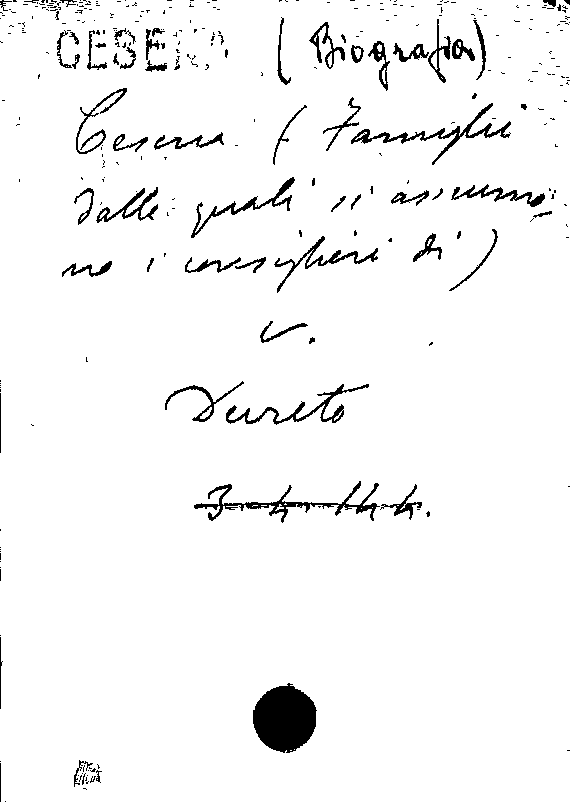 CESENA (Biografia)
Cesena (Famiglie
dalle quali si assumo-
no i consiglieri di)
v.
Decreto
3. 4. 144.